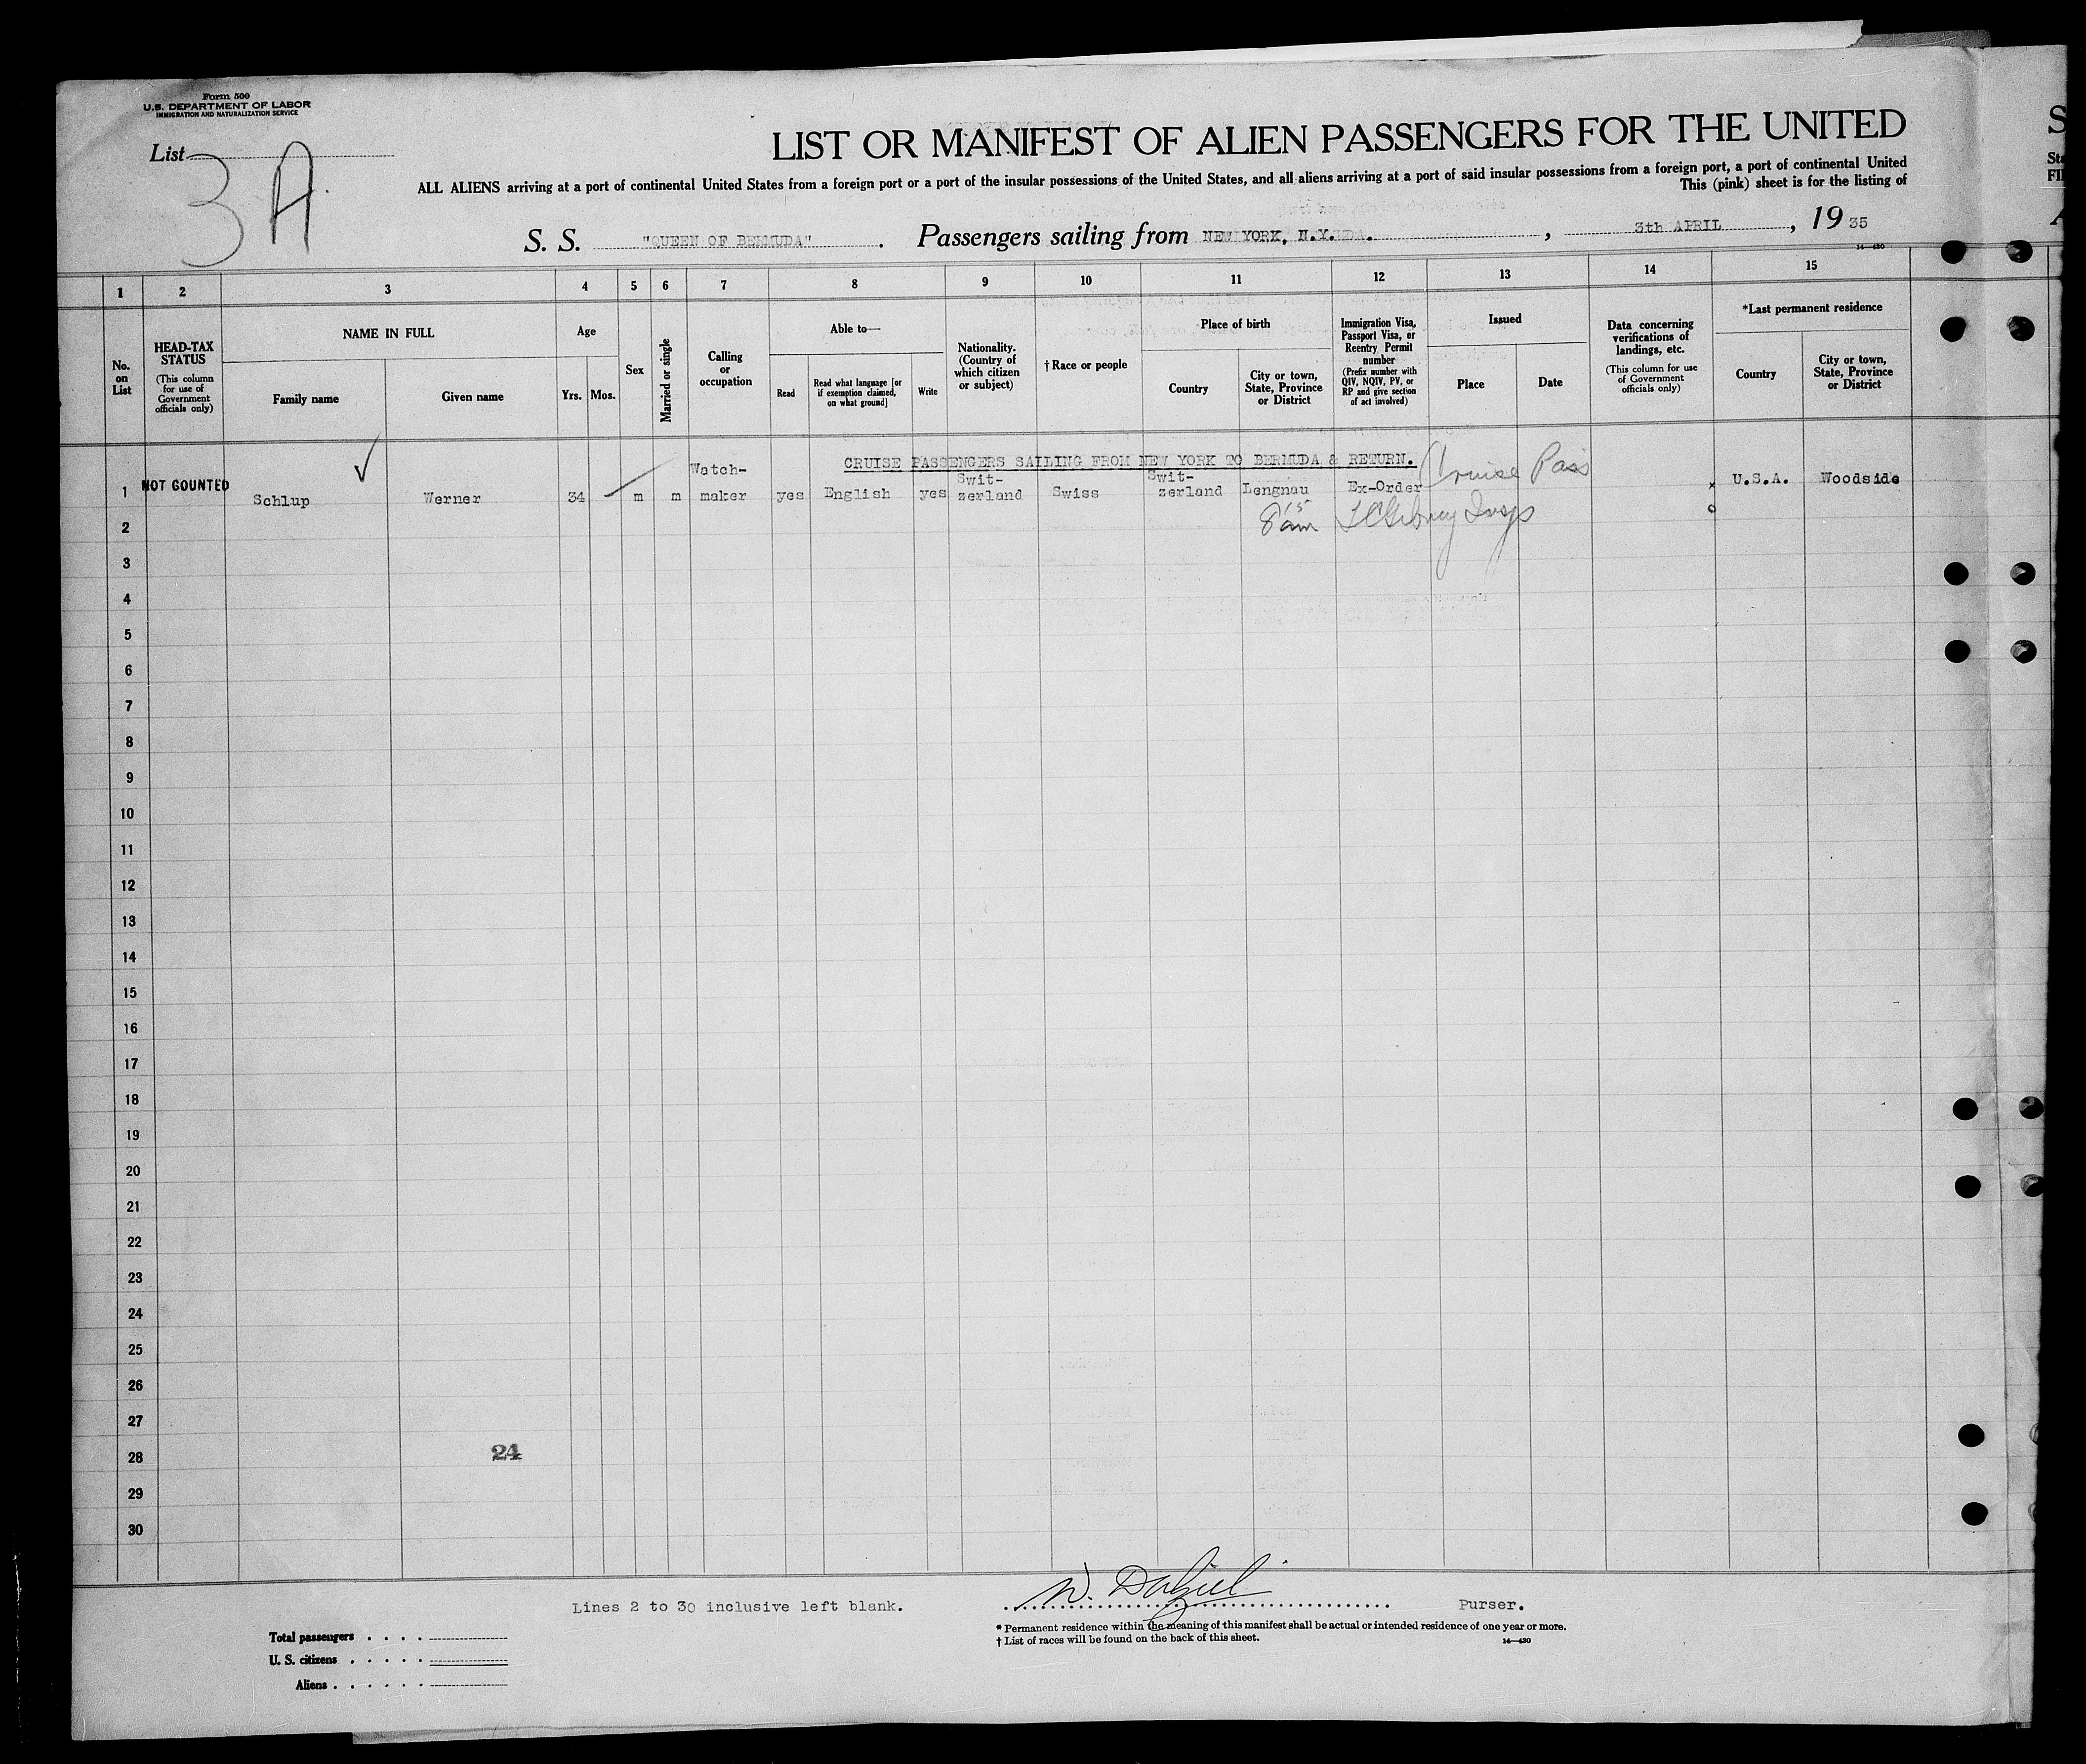 Form 500
U.S. DEPARTMENT OF LABOR
IMMIGRATION AND NATURALIZATION SERVICE
List 3 A
LIST OR MANIFEST OF ALIEN PASSENGERS FOR THE UNITED
ALL ALIENS arriving at a port of continental United States from a foreign port or a port of the insular possessions of the United States, and all aliens arriving at a port of said insular possessions from a foreign port, a port of continental United
This (pink) sheet is for the listing of
S. S. "QUEEN OF BERMUDA". Passengers sailing from NEW YORK, N.Y. , 3th APRIL , 19 35
14—430
1 2 3 4 5 6 7 8 9 10 11 12 13 14 15
No. on List
HEAD-TAX STATUS
(This column for use of Government officials only)
NAME IN FULL
Family name
Given name
Age
Yrs. Mos.
Sex
Married or single
Calling or occupation
Able to—
Read
Read what language [or if exemption claimed, on what ground]
Write
Nationality. (Country of which citizen or subject)
† Race or people
Place of birth
Country
City or town, State, Province or District
Immigration Visa, Passport Visa, or Reentry Permit number
(Prefix number with QIV, NQIV, PV, or RP and give section of act involved)
Issued
Place
Date
Data concerning verifications of landings, etc.
(This column for use of Government officials only)
*Last permanent residence
Country
City or town, State, Province or District
CRUISE PASSENGERS SAILING FROM NEW YORK TO BERMUDA & RETURN. Cruise Pass
1 NOT COUNTED Schlup Werner 34 m m Watch-maker yes English yes Swit-zerland Swiss Swit-zerland Lengnau Ex-Order x U.S.A. Woodside
2 8 15 am Insp o
3
4
5
6
7
8
9
10
11
12
13
14
15
16
17
18
19
20
21
22
23
24
25
26
27
28 24
29
30
Lines 2 to 30 inclusive left blank. W. Dalziel Purser.
* Permanent residence within the meaning of this manifest shall be actual or intended residence of one year or more.
† List of races will be found on the back of this sheet. 14—430
Total passengers
U. S. citizens
Aliens